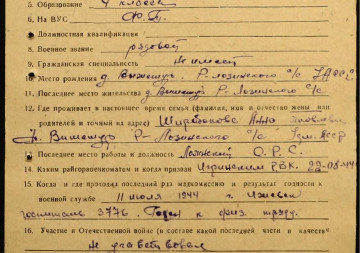 5. Образование 4 класса
6. На ВУС
7. Должностная квалификация
8. Военное звание рядовой
9. Гражданская специальность не имеет
10. Место рождения д. Вишекурь Р-Лозинского с/с УАССР
11. Последнее место жительства д. Вишекурь Р. Лозинского с/с
12. Где проживает в настоящее время семья (фамилия, имя и отчество жены или
родителей и точный адрес) Широбокова Анна
д. Вишекурь Р-Лозинского с/с Удм. АССР
13. Последнее место работы и должность Лозинский О.Р.С.
14. Каким райгорвоенкоматом и когда призван Игринским РВК. 22-08-44
15. Когда и где проходил последний раз медкомиссию и результат годности к
военной службе 11 июля 1944 г Ижевск
госпиталь 3776. Годен к физ. труду.
16. Участие в Отечественной войне (в составе какой последней части и в качестве
Не участвовал